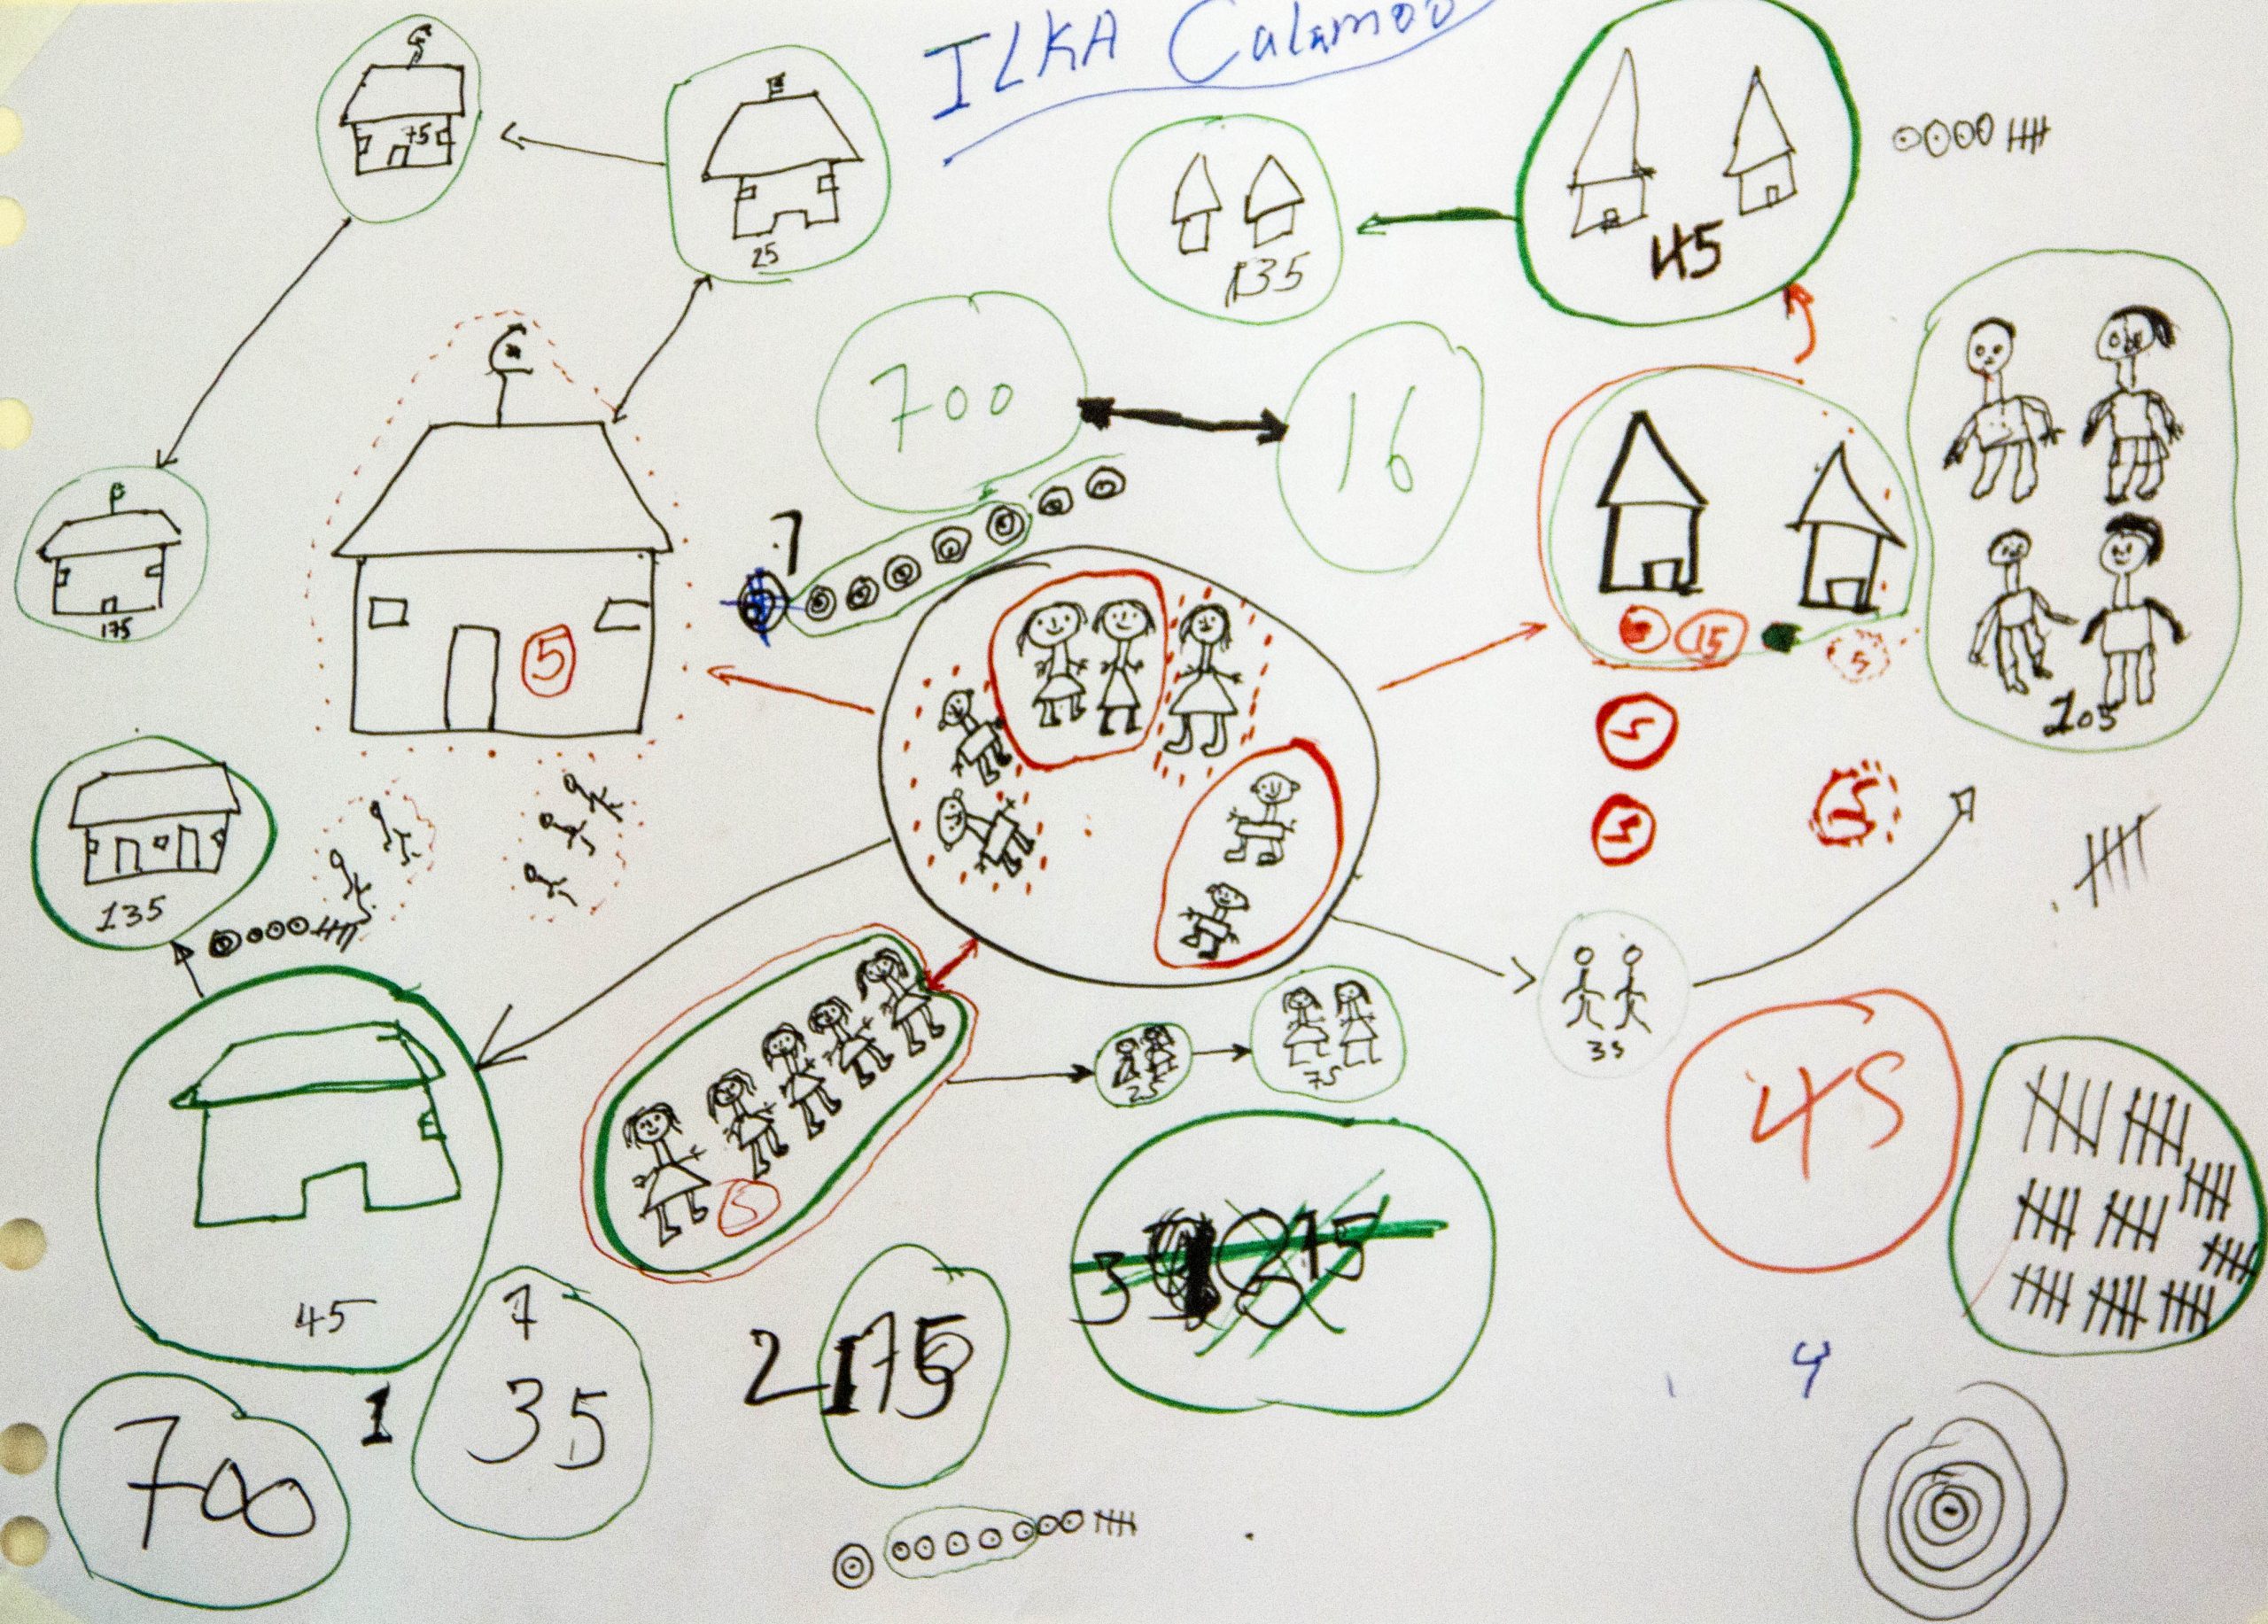 ILKA Calamoo
75
25
135
45
700
16
7
175
5
15
5
105
5
5
5
135
35
25
75
45
5
45
7
35
2 175
4
700
1